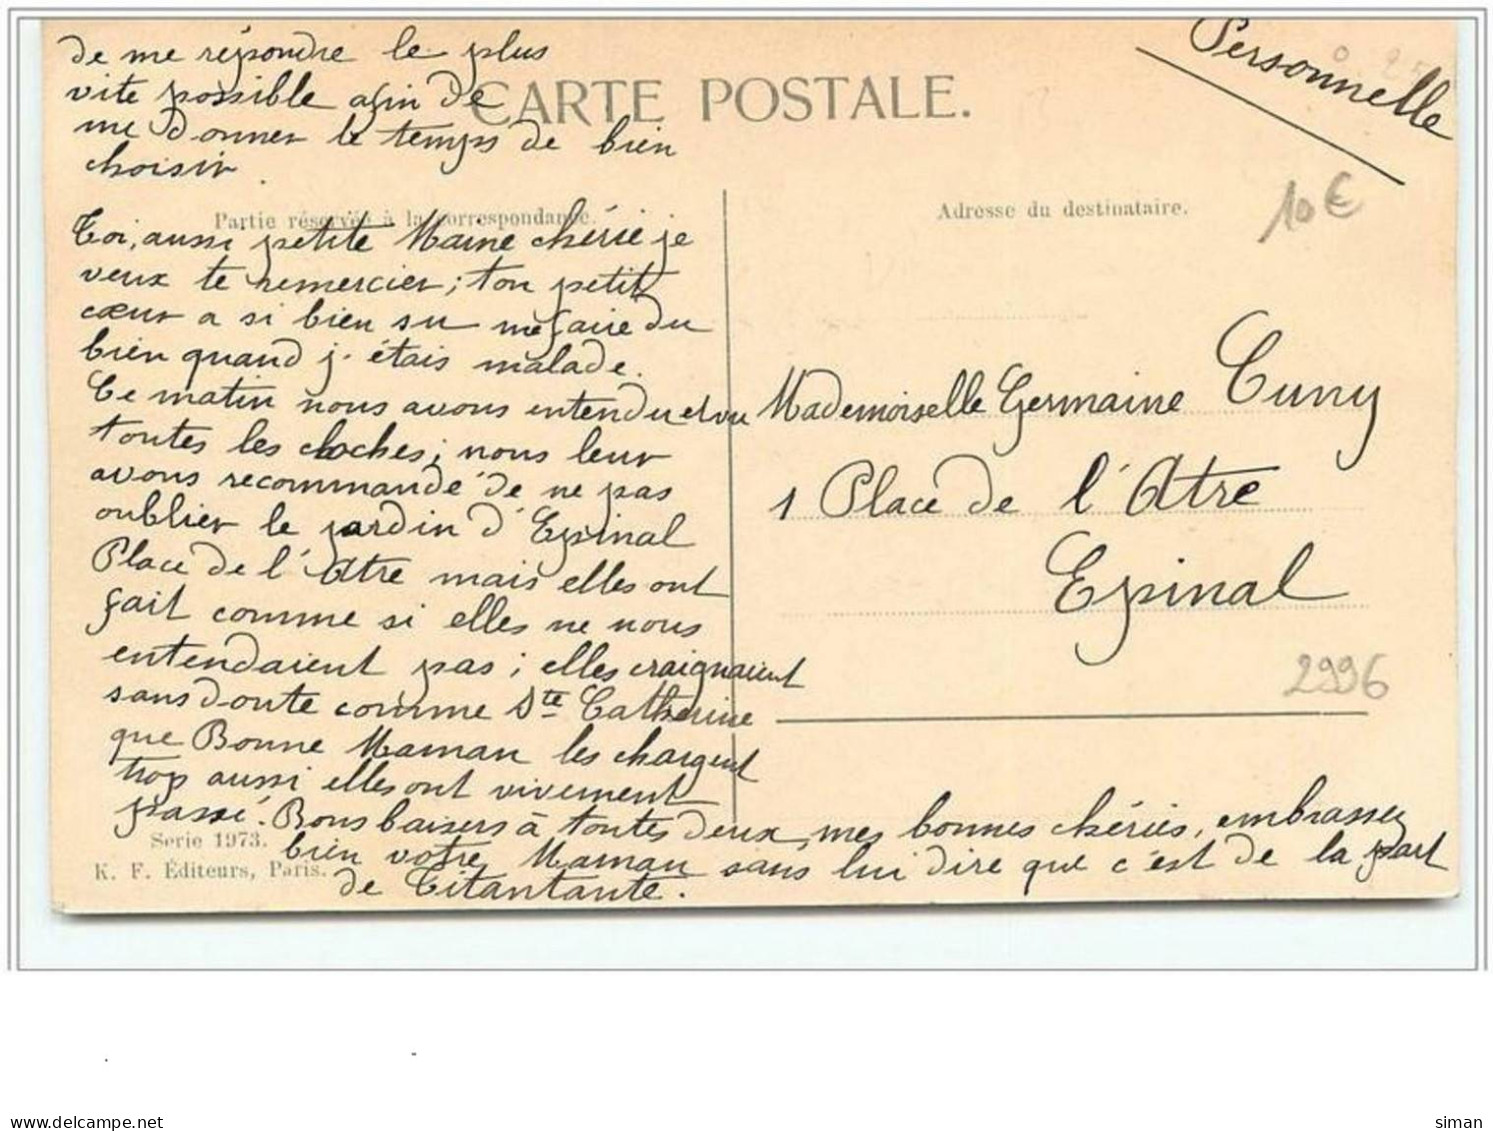 de me répondre le plus
vite possible afin de
me donner le temps de bien
choisir.
CARTE POSTALE.
Personnelle
10€
Partie réservée à la correspondance.
Adresse du destinataire.
Toi, aussi petite Maine chérie je
veux te remercier; ton petit
cœur a si bien su me faire du
bien quand j'étais malade.
Ce matin nous avons entendu et vu
toutes les cloches; nous leur
avons recommandé de ne pas
oublier le jardin d'Epinal
Place de l'Atre mais elles ont
fait comme si elles ne nous
entendaient pas; elles craignaient
sans doute comme Ste Catherine
que Bonne Maman les chargent
trop aussi elles ont vivement
passé. Bons baisers à toutes deux, mes bonnes chéries, embrassez
bien votre Maman sans lui dire que c'est de la part
de Titantante.
Mademoiselle Germaine Cuny
1 Place de l'Atre
Epinal
2996
Serie 1973.
K. F. Éditeurs, Paris.
delcampe.net
siman